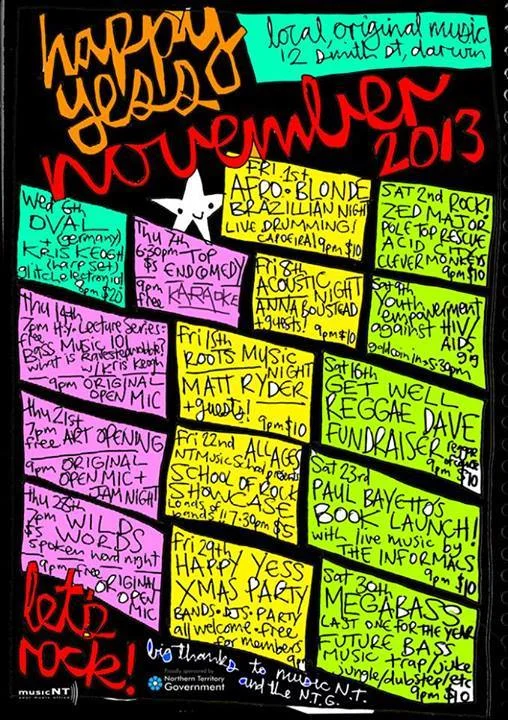 happy
yess
local, original music
12 Smith St, darwin
november
2013
FRI 1st
AFRO·BLONDE
BRAZILLIAN NIGHT
LIVE DRUMMING!
CAPOEIRA! 9pm $10
SAT 2nd ROCK!
ZED MAJOR
POLE TOP RESCUE
ACID CITY
CLEVER MONKEYS
9pm $10
Wed 6th
OVAL
(germany)
+
KRIS KEOGH
(harp set)
glitch electronia!
8pm $20
Thu 7th
6:30pm - TOP
$5 END COMEDY
9pm
free KARAOKE
Fri 8th
ACOUSTIC
NIGHT
ANNA BOUSTEAD
+guests! 9pm $10
Sat 9th
Youth
empowerment
against HIV/
AIDS
gig
goldcoin 1:30-5:30pm
Thu 14th
7pm Hy. Lecture Series:
free
Bass Music 101
w/ Kris Keogh
9pm ORIGINAL
OPEN MIC
Fri 15th
ROOTS MUSIC
NIGHT
MATT RYDER
+guests!
9pm $10
Sat 16th
GET WELL
REGGAE DAVE
FUNDRAISER
9pm $10
thu 21st
7pm
free ART OPENING
9pm ORIGINAL
OPEN MIC +
JAM NIGHT
Fri 22nd ALLAGES
NT Music School presents
SCHOOL OF ROCK
SHOWCASE
Loads of
bands!! 7:30pm $5
Sat 23rd
PAUL BAYETTO's
BOOK LAUNCH!
with live music by
THE INFORMALS
9pm $10
Thu 28th
7pm WILD
$5 WORDS
spoken word night
9pm free
ORIGINAL
OPEN
MIC
Fri 29th
HAPPY YESS
XMAS PARTY
BANDS·DJS·PARTY
all welcome·free
for members
Sat 30th
MEGABASS
LAST ONE FOR THE YEAR
FUTURE BASS
MUSIC trap/juke
jungle/dubstep/etc
9pm $10
let's
rock!
big thanks to music N.T.
and the N.T.G.
Proudly sponsored by
Northern Territory
Government
musicNT